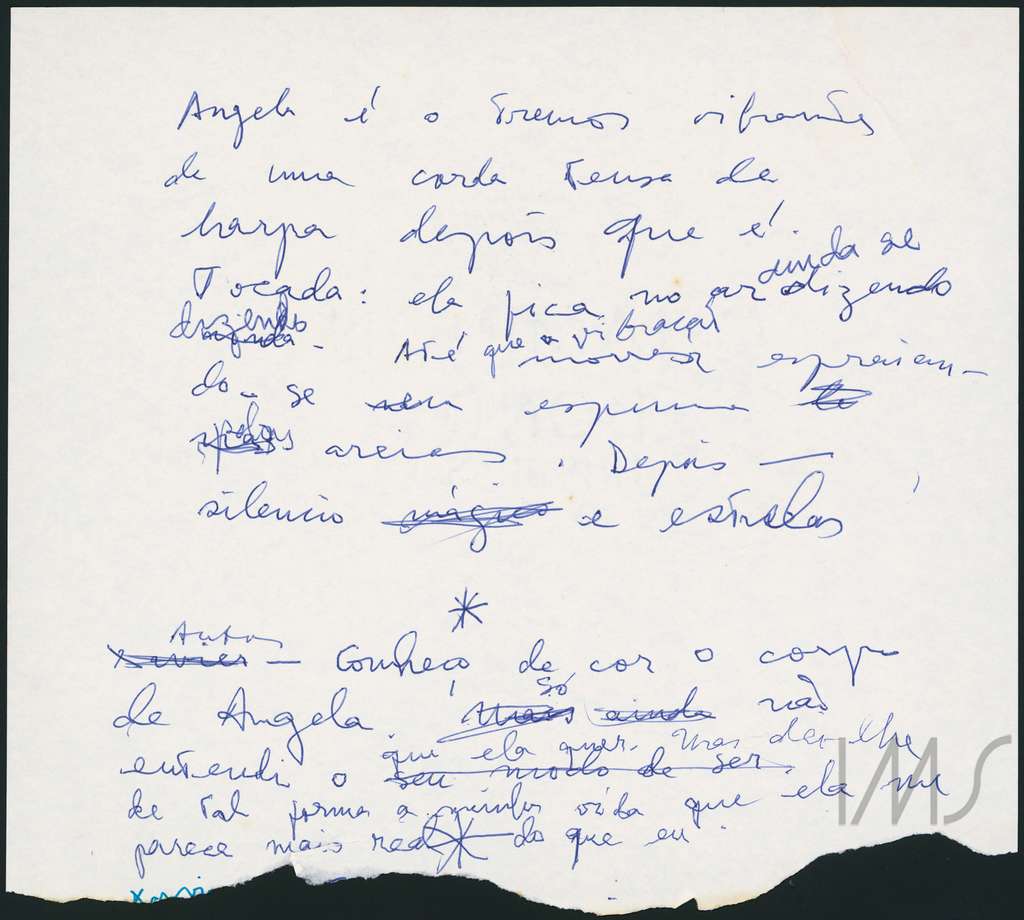 Angela é o tremor vibrante
de uma corda tensa de
harpa depois que é
Tocada: ela fica no ar ainda se dizendo
dizendo - Até que a vibração morresse espraian-
do-se em espuma
pelas areias. Depois —
silencio mágico e estrelas
*
Autor
Xavier — Conheço de cor o corpo
de Angela. Só Mas ainda não
entendi o que ela quer. Mas dei-lhe
seu modo de ser
de tal forma a minha vida que ela me
parece mais real do que eu.
IMS